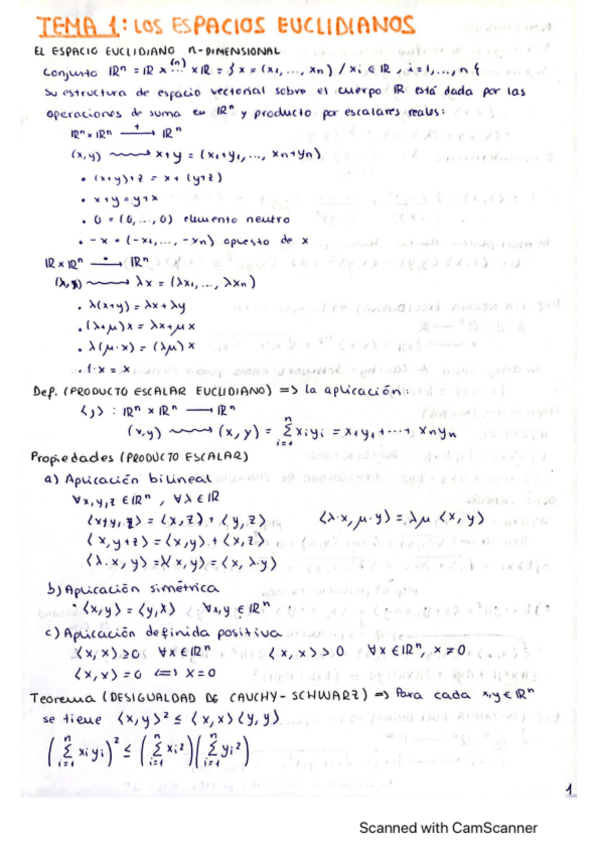 TEMA 1: LOS ESPACIOS EUCLIDIANOS
EL ESPACIO EUCLIDIANO n-DIMENSIONAL
Conjunto ℝⁿ = ℝ × (n)... × ℝ = { x = (x₁, ..., xₙ) / xᵢ ∈ ℝ, i=1, ..., n {
Su estructura de espacio vectorial sobre el cuerpo ℝ está dada por las
operaciones de suma en ℝⁿ y producto por escalares reales:
ℝⁿ × ℝⁿ —+→ ℝⁿ
(x,y) ⟿ x+y = (x₁+y₁, ..., xₙ+yₙ)
• (x+y)+z = x+(y+z)
• x+y = y+x
• 0 = (0, ..., 0) elemento neutro
• -x = (-x₁, ..., -xₙ) opuesto de x
ℝ × ℝⁿ —•→ ℝⁿ
(λ,x) ⟿ λx = (λx₁, ..., λxₙ)
• λ(x+y) = λx+λy
• (λ+μ)x = λx+μx
• λ(μ·x) = (λμ)x
• 1·x = x
Def. (PRODUCTO ESCALAR EUCLIDIANO) => la aplicación:
⟨,⟩ : ℝⁿ × ℝⁿ → ℝⁿ
(x,y) ⟿ (x,y) = Σⁿᵢ₌₁ xᵢyᵢ = x₁y₁ + ... + xₙyₙ
Propiedades (PRODUCTO ESCALAR)
a) Aplicación bilineal
∀x,y,z ∈ ℝⁿ, ∀λ ∈ ℝ
⟨x+y, z⟩ = ⟨x,z⟩ + ⟨y,z⟩ ⟨λ·x, μ·y⟩ = λμ ⟨x,y⟩
⟨x, y+z⟩ = ⟨x,y⟩ + ⟨x,z⟩
⟨λ·x, y⟩ = λ⟨x,y⟩ = ⟨x, λ·y⟩
b) Aplicación simétrica
• ⟨x,y⟩ = ⟨y,x⟩ ∀x,y ∈ ℝⁿ
c) Aplicación definida positiva
⟨x,x⟩ ≥ 0 ∀x ∈ ℝⁿ ⟨x,x⟩ > 0 ∀x ∈ ℝⁿ, x ≠ 0
⟨x,x⟩ = 0 ⟺ x = 0
Teorema (DESIGUALDAD DE CAUCHY-SCHWARZ) => Para cada x,y ∈ ℝⁿ
se tiene ⟨x,y⟩² ≤ ⟨x,x⟩⟨y,y⟩
(Σⁿᵢ₌₁ xᵢyᵢ)² ≤ (Σⁿᵢ₌₁ xᵢ²)(Σⁿᵢ₌₁ yᵢ²)
1
Scanned with CamScanner